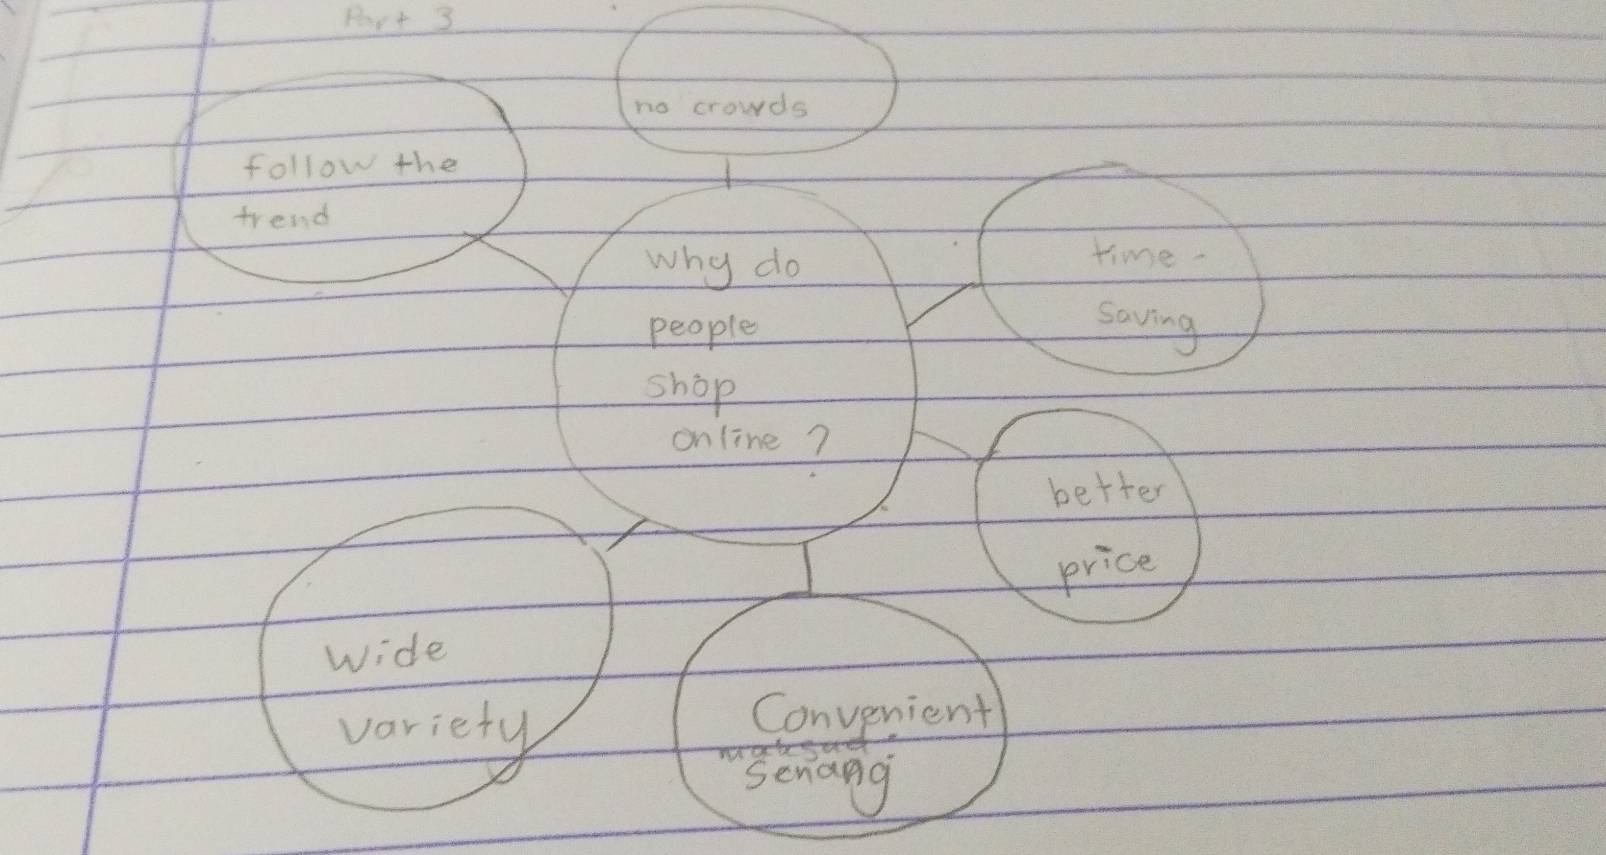 Part 3
no crowds
follow the
trend
Why do
people
shop
online ?
time -
saving
better
price
Wide
variety
Convenient
maksud
Senang